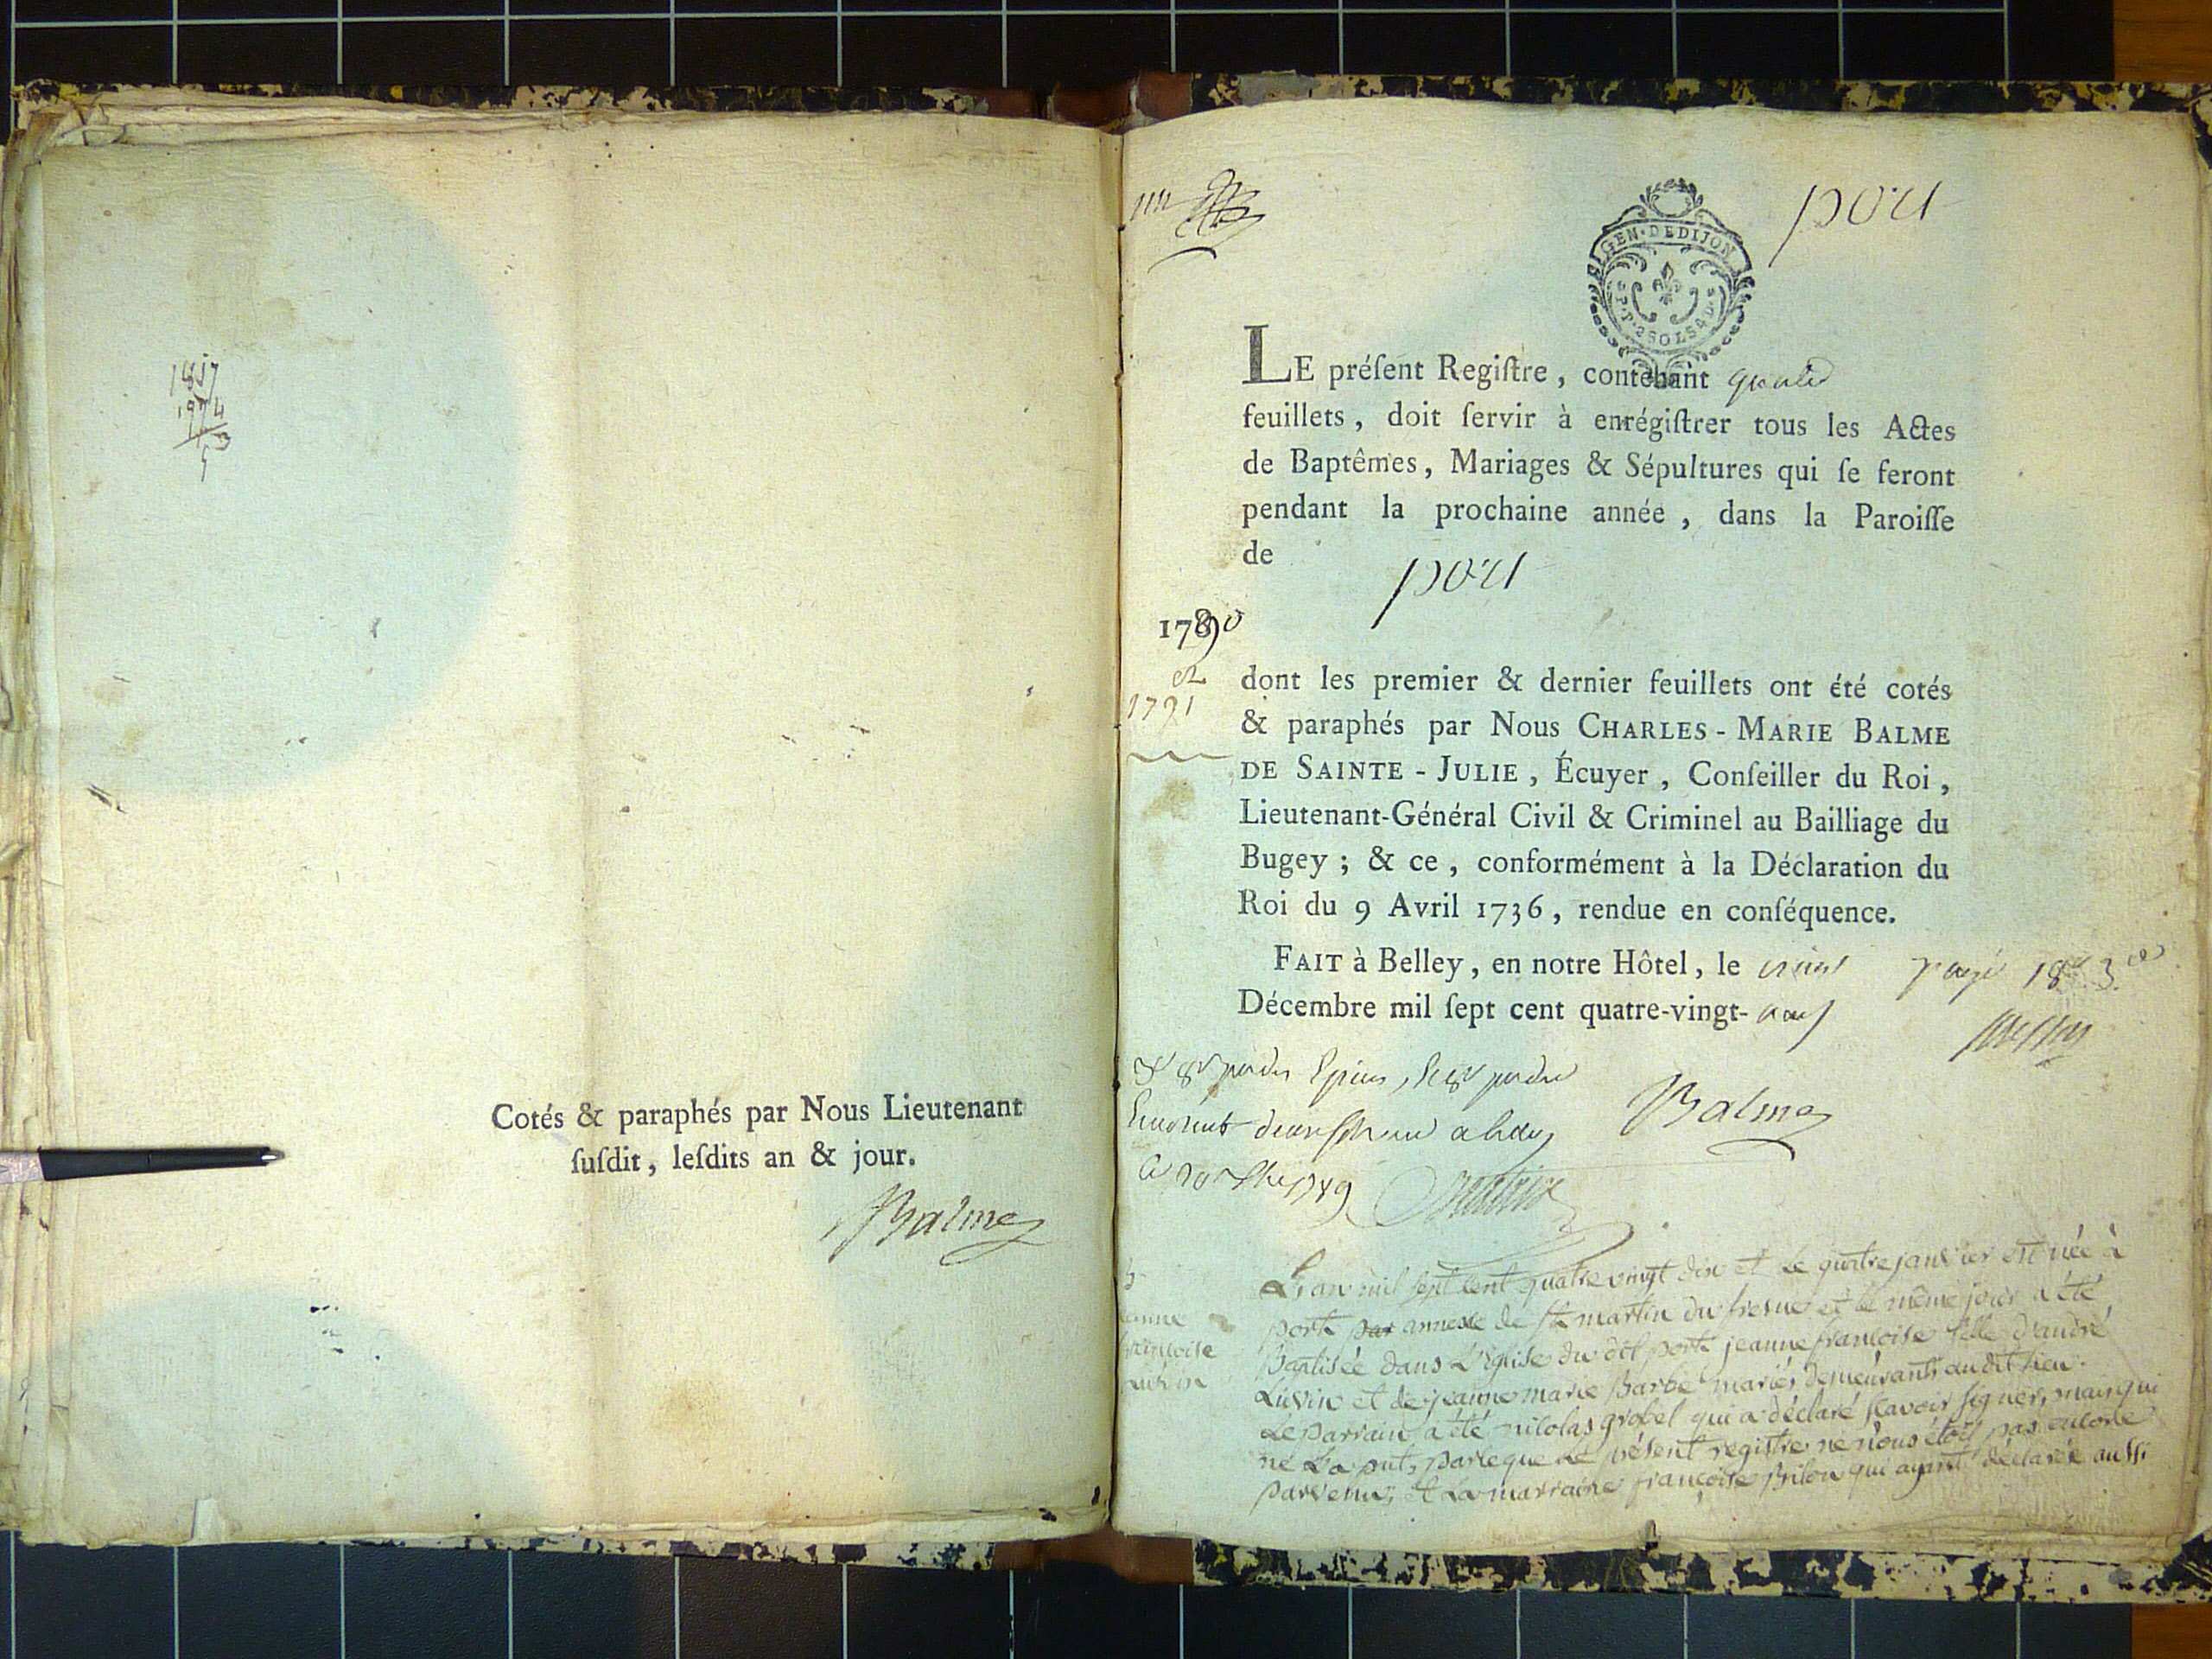 1817
Cotés & paraphés par Nous Lieutenant
ſuſdit, leſdits an & jour.
Balme
port
GEN·DE DIJON
LE préſent Regiſtre, contenant quatre
feuillets, doit ſervir à enrégiſtrer tous les Actes
de Baptêmes, Mariages & Sépultures qui ſe feront
pendant la prochaine année, dans la Paroiſſe
de
port
1789 0
et
1791
dont les premier & dernier feuillets ont été cotés
& paraphés par Nous CHARLES-MARIE BALME
DE SAINTE-JULIE, Écuyer, Conſeiller du Roi,
Lieutenant-Général Civil & Criminel au Bailliage du
Bugey; & ce, conformément à la Déclaration du
Roi du 9 Avril 1736, rendue en conſéquence.
FAIT à Belley, en notre Hôtel, le vingt
Décembre mil ſept cent quatre-vingt-neuf
Balme
L'an mil sept cent quatre vingt dix et le quatre janvier est née à
port par annexe de st martin du fresne et le même jour a été
Baptisée dans L'Eglise du dit port jeanne françoise fille d'andré
Luvin et de jeanne marie Barbe mariés demeurants au dit lieu.
Le parrain a été nicolas grobel qui a déclaré scavoir signer, mais qui
ne l'a put, parceque le présent registre ne nous étoit pas encore
parvenu; et la marraine françoise qui ayant déclarée aussi